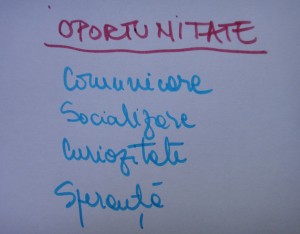 OPORTUNITATE
Comunicare
Socializare
Curiozitate
Speranță